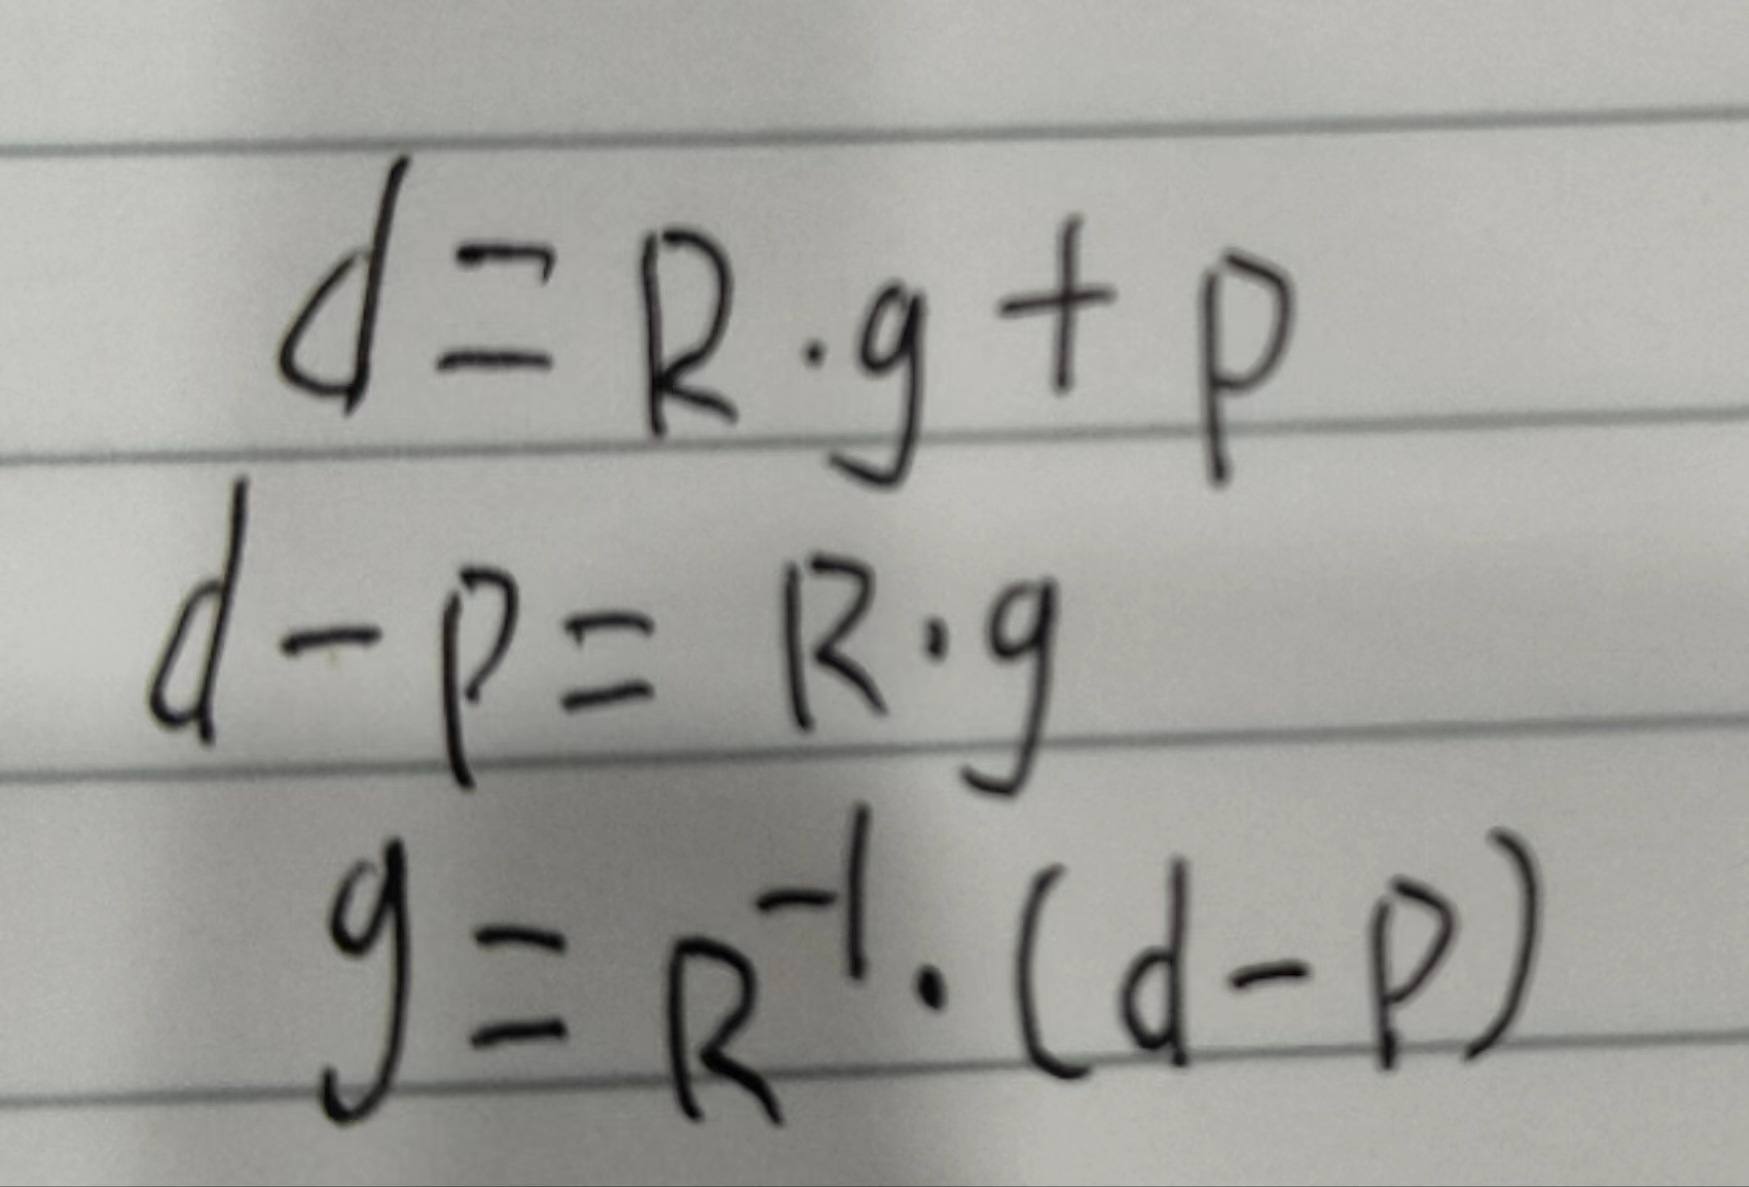 d = R · g + p
d - p = R · g
g = R⁻¹ · (d - p)